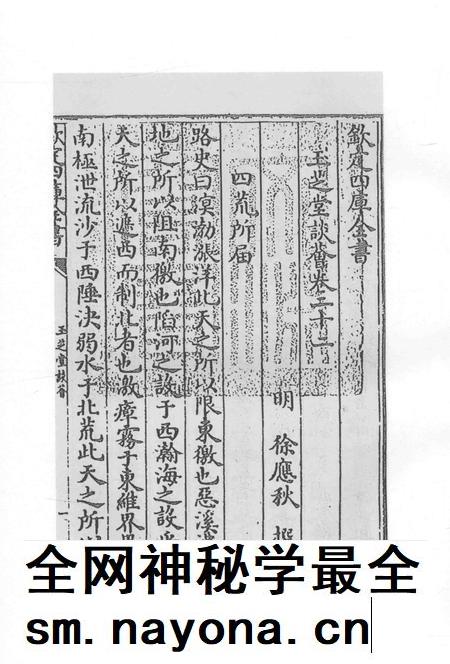 欽定四庫全書
玉芝堂談薈卷二十二
明 徐應秋 撰
四荒所届
路史曰溟渤漲洋此天之所以限東徼也惡溪
地之所以阻南徼也陷河之設于西瀚海之設
天之所以遮西而制北者也激瘴霧于東維界
南極泄流沙于西陲決弱水于北荒此天之所
欽定四庫全書
玉芝堂談薈
一
全网神秘学最全
sm.nayona.cn